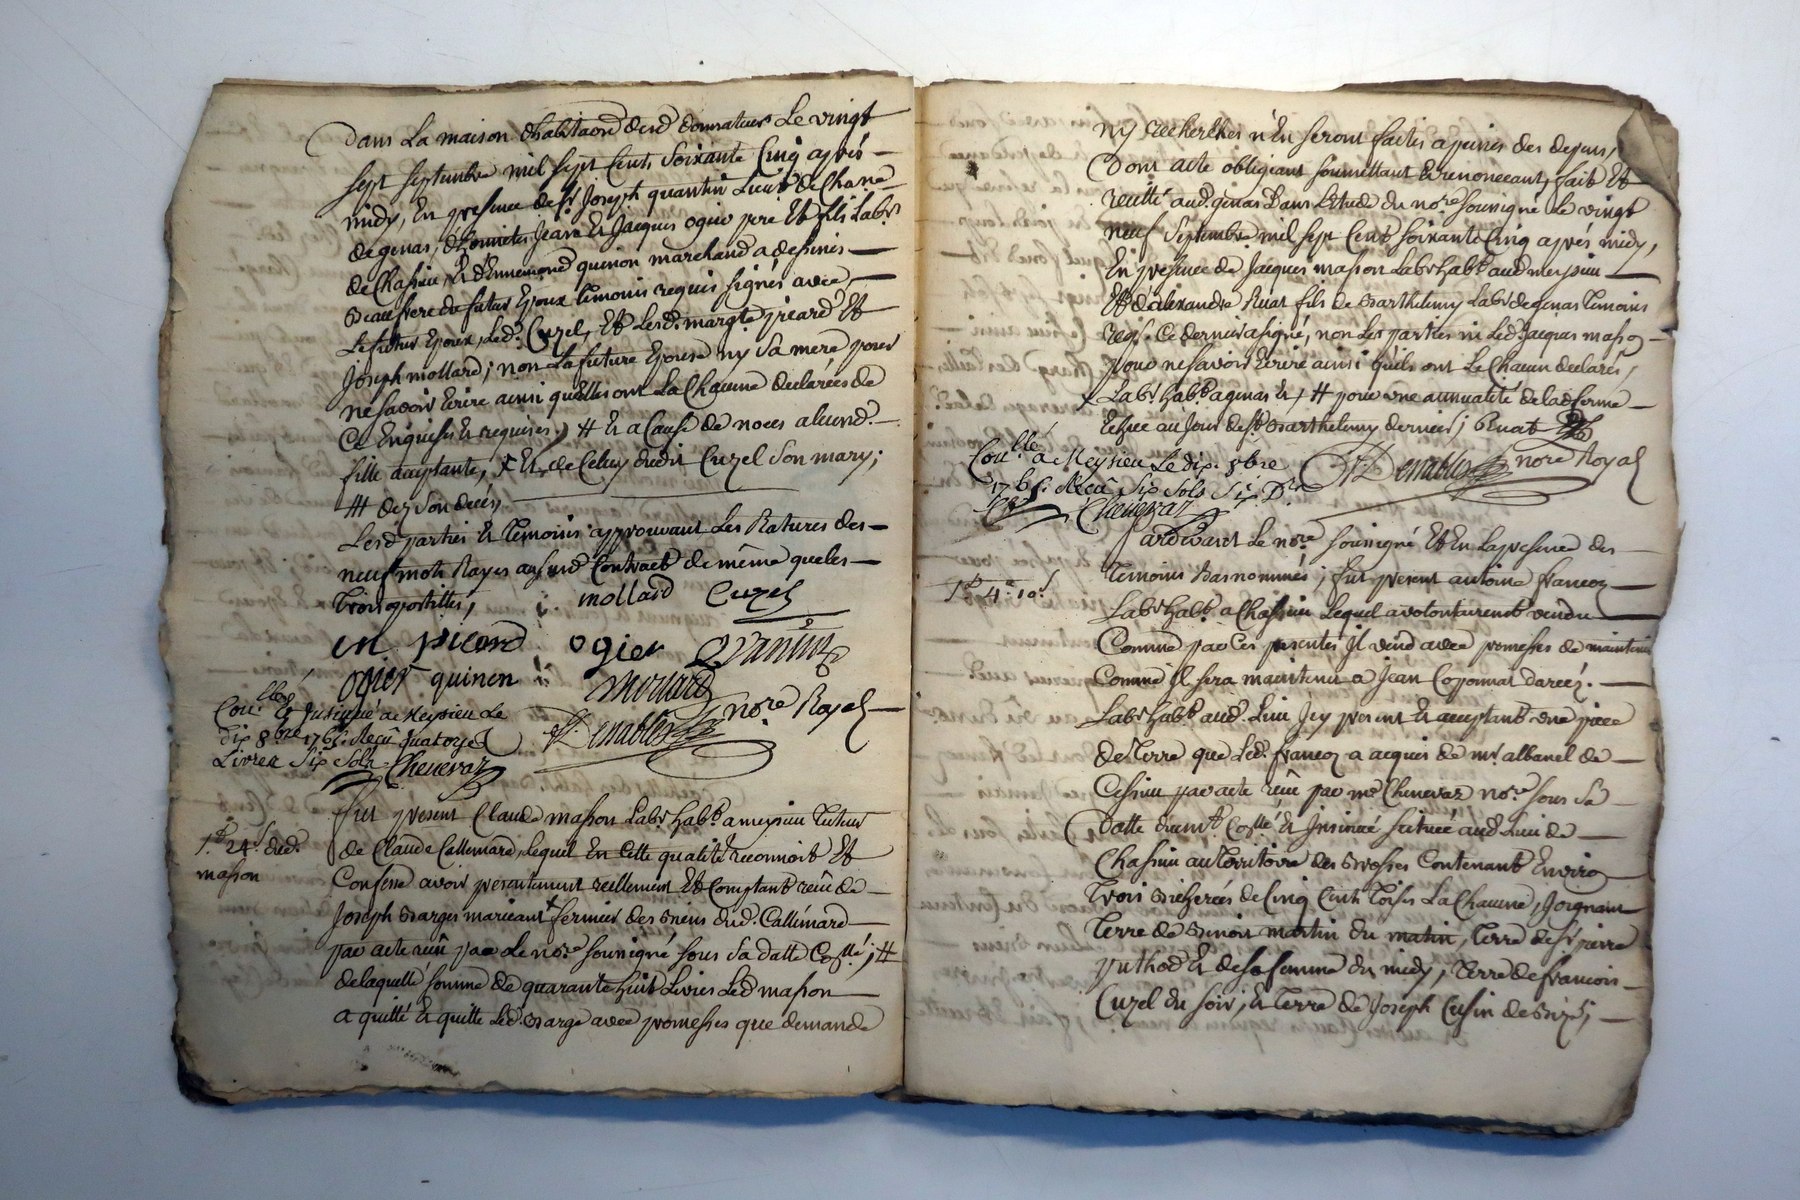 Dans La maison d'habitaon desd donnateurs Le vingt
sept septembre mil sept Cents soixante Cinq après
midy, En presence de sr Joseph quantin Lieut de Chane
de genas, d'honnetes Jean & Jacques ogier pere Et fils Labrs
de Chassieu, & d'Ennemond quinon marchand a dessines
Beaufrere du futur Epoux temoins requis signés avec
Le futur Epoux, led. Cuzel, Et Lesd. margte picard Et
Joseph mollard; non La future Epouse ny sa mere pour
ne savoir Ecrire ainsi qu'elles ont La Chacune declarées de
Ce Enquises & requises. # & a Cause de noces a lad.
fille acceptante, & de Celuy dudit Cuzel son mary;
# dez son decés
Lesd parties & temoins approuvant Les Ratures des
neuf mots Rayes au susd Contract de même que les
trois apostilles,
mollard Cuzel
m picard ogier Quantin
ogier quinon mollard
Debnables nore Royal
Conllé & Insinué a Meysieu Le
dix 8bre 1765. Reçû quatorze
Livres six sols Chenevaz
fut present Claude masson Labr habt a meysieu tuteur
1re 24s. dud.
masson
de Claude Callemard, lequel En Cette qualité reconnoit Et
Confesse avoir presentement reellement Et Comptant reçû de
Joseph Barges fermier des Biens dud. Callémard
par acte reçû par Le nore soussigné sous sa datte Collé; #
delaquelle somme de quarante huit Livres Led masson
a quitté & quitte Led. Barge avec promesses que demande
ny recherches n'En seront faites a peines des depens,
Dont acte obligeant soumettant & renonceant, fait Et
recitté aud. genas Dans L'Etude du nore soussigné Le vingt
neuf septembre mil sept Cent soixante Cinq après midy,
En presence de Jacques masson Labr habt aud meysieu
Et d'alexandre Ruat fils de Barthelemy Labr de genas temoins
reqs. Ce dernier a signé, non Les parties ni Led. Jacques masson
pour ne savoir Ecrire ainsi qu'ils ont Le Chacun declarés,
Labr habt a genas & # pour une annualité de lad ferme
Echue au Jour de st Barthelemy dernier; Ruat
nore Royal
Conllé a Meysieu Le dix 8bre
1765. Reçû six sols six Drs
Chenevaz
Pardevant Le nore soussigné Et En La presence des
temoins Bas nommés; fut present antoine francoz
1re 4s. 10d.
Labr habt a Chassieu Lequel a volontairement vendu
Comme par Ces presentes Il vend avec promesses de maintenir
Comme Il sera maintenir a Jean Coponnat
Labr habt aud. Lieu Icy present & acceptant une piece
de terre que Led. francoz a acquis de mr albanel de
Cessieu par acte reçû par me Chenevaz nore sous sa
Datte Collé & Insinué située aud Lieu de
Chassieu au Territoire des Brosses Contenant Environ
trois Bicherées de Cinq Cents toises La Chacune, Joignant
terre de Benoit martin du matin, terre de sr pierre
puthod & de sa femme du midy, terre de francois
Cuzel du soir, & terre de Joseph Cusin de Bize;